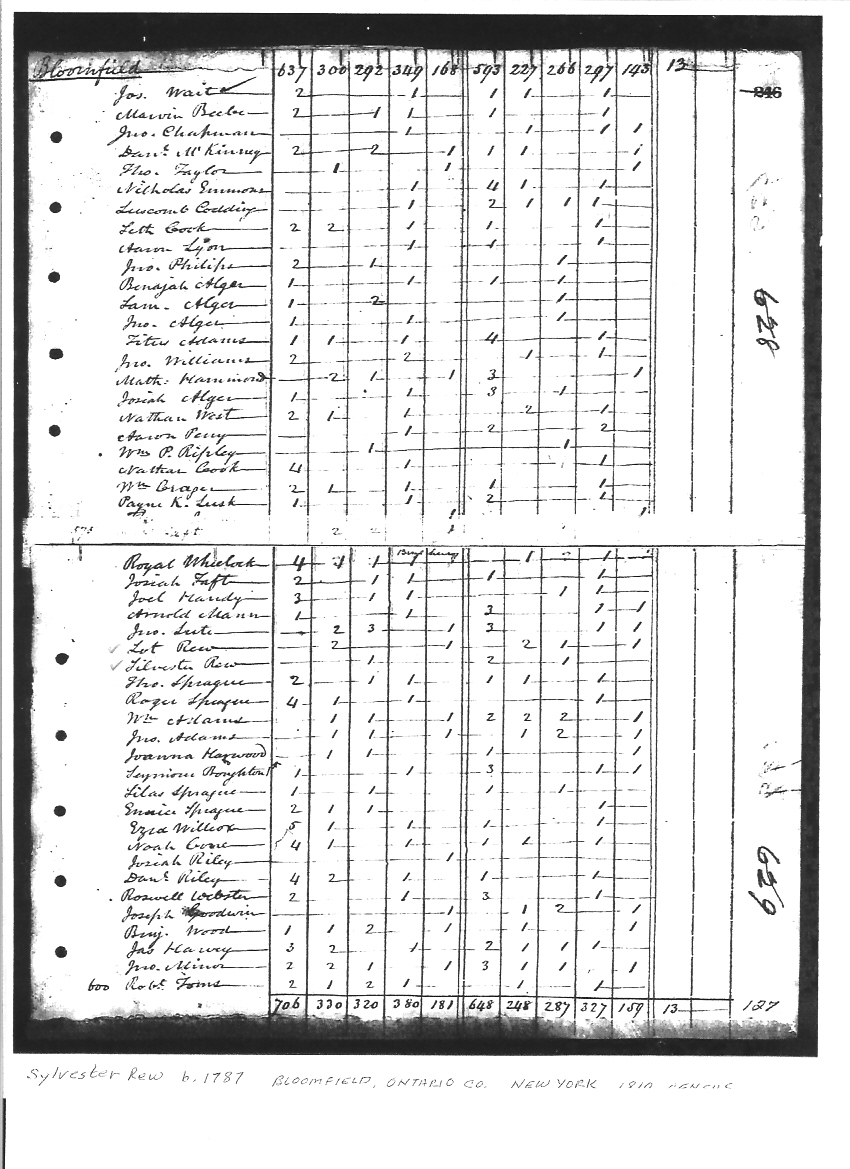 Bloomfield 637 300 292 349 168 593 227 266 297 143 13
Jos. Wait 2 1 1 1 1
246
Marvin Beebe 2 1 1 1 1
Jno. Chapman 1 1 1 1
Danl. McKinney 2 2 1 1 1 1
Tho. Taylor 1 1 1
Nicholas Emmons 1 4 1 1
Luscomb Codding 1 2 1 1 1
Seth Cook 2 2 1 1 1
Aaron Lyon 1 1 1
Jno. Philips 2 1 1
Benajah Alger 1 1 1 1
Sam. Alger 1 2 1
Jno. Alger 1 1 1
Titus Adams 1 1 1 4 1
628
Jno. Williams 2 2 1 1
Math: Hammond 2 1 1 3 1
Josiah Alger 1 1 3 1
Nathan West 2 1 1 2 1
Aaron Perry 1 2 2
Wm P. Ripley 1 1
Nathan Cook 4 1 1
Wm Crager 2 1 1 1 1
Payne K. Lusk 1 1 2 1
Royal Wheelock 4 1 1 1 1
Josiah Taft 2 1 1 1 1
Joel Handy 3 1 1 1 1
Arnold Mann 1 1 3 1 1
Jno. Lute 2 3 1 3 1 1
Lot Rew 2 1 2 1 1
Silvester Rew 1 2 1
Tho. Sprague 2 1 1 1 1 1
Roger Sprague 4 1 1 1
Wm Adams 1 1 1 2 2 2 1
Jno. Adams 1 1 1 1 2 1
Joanna Harwood 1 1 1 1
Seymour Boughton 1 1 3 1 1
Silas Sprague 1 1 1 1
Eunice Sprague 2 1 1 1
Ezra Willcox 5 1 1 1 1
Noah Gone 4 1 1 1 1 1
Josiah Riley 1
Danl. Riley 4 2 1 1 1
629
Roswell Webster 2 1 3 1
Joseph Goodwin 1 1 2 1
Benj. Wood 1 1 2 1 1 1
Jas Harvey 3 2 1 2 1 1 1
Jno. Minor 2 2 1 1 3 1 1 1
600 Robt. Toms 2 1 2 1 1 1
706 330 320 380 181 648 248 287 327 159 13 127
Sylvester Rew b. 1787 BLOOMFIELD, ONTARIO CO. NEW YORK 1810